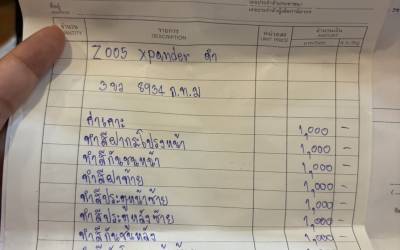 ชื่อผู้
จำนวน รายการ หน่วยละ จำนวนเงิน
QUANTITY DESCRIPTION UNIT PRICE AMOUNT
Z005 Xpander ดำ
3ขง 8934 ก.ท.ม
ค่าเคาะ 1,000 -
ทำสีฝากระโปรงหน้า 1,000 -
ทำสีกันชนหน้า 1,000 -
ทำสีฝาซ้าย 1,000 -
ทำสีประตูหน้าซ้าย 1,000 -
ทำสีประตูหลังซ้าย 1,000 -
ทำสีกันชนหลัง 1,000 -